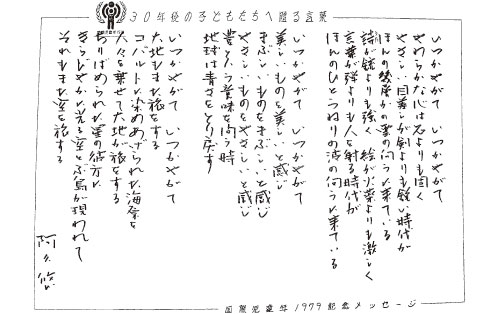 30年後の子どもたちへ贈る言葉
いつかやがて
やわらかな心は石よりも固く
やさしい目差しが剣よりも鋭い時代が
ほんの幾度かの雲の向うに来ている
詩が銃よりも強く 絵が火薬よりも激しく
言葉が弾よりも人を射る時代が
ほんのひとうねりの波の向うに来ている
いつかやがて いつかやがて
美しいものを美しいと感じ
まぶしいものをまぶしいと感じ
やさしいものをやさしいと感じ
豊という意味を問う時
地球は青さをとり戻す
いつかやがて いつかやがて
大地もまた旅をする
コバルトに染めあげられた海原を
人々を乗せて大地が旅をする
ちりばめられた星の彼方に
きらびやかに光る空とぶ島が現われて
それもまた空を旅する
阿久悠
国際児童年1979記念メッセージ